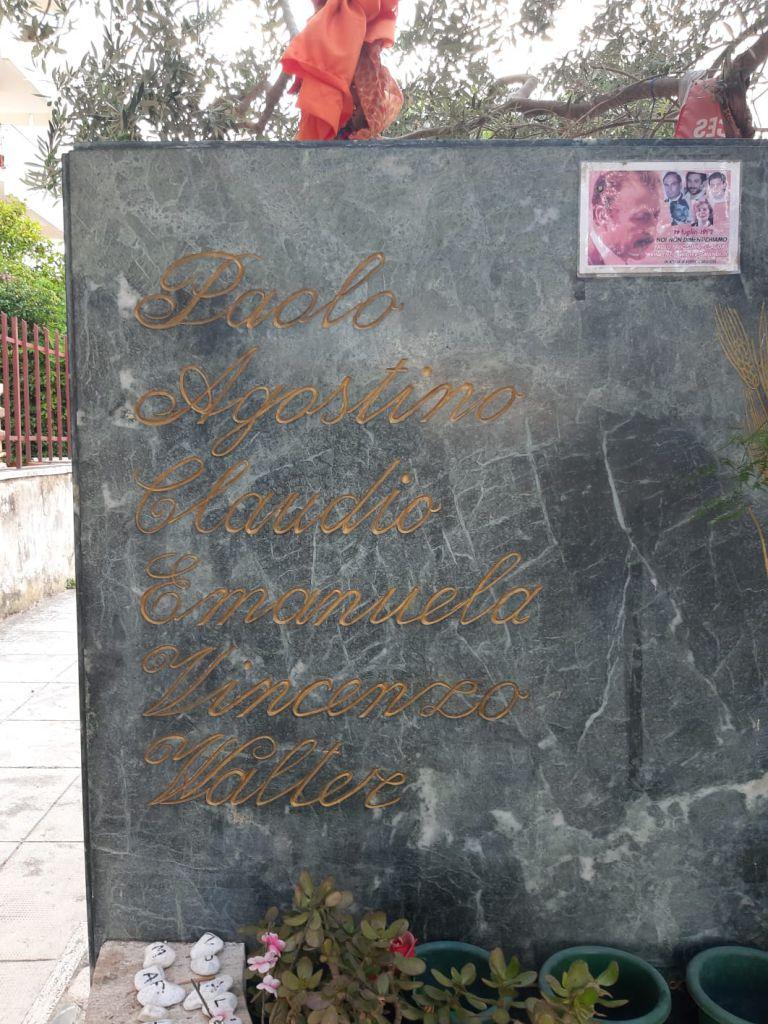 Paolo
Agostino
Claudio
Emanuela
Vincenzo
Walter
19 luglio 1992
NOI NON DIMENTICHIAMO